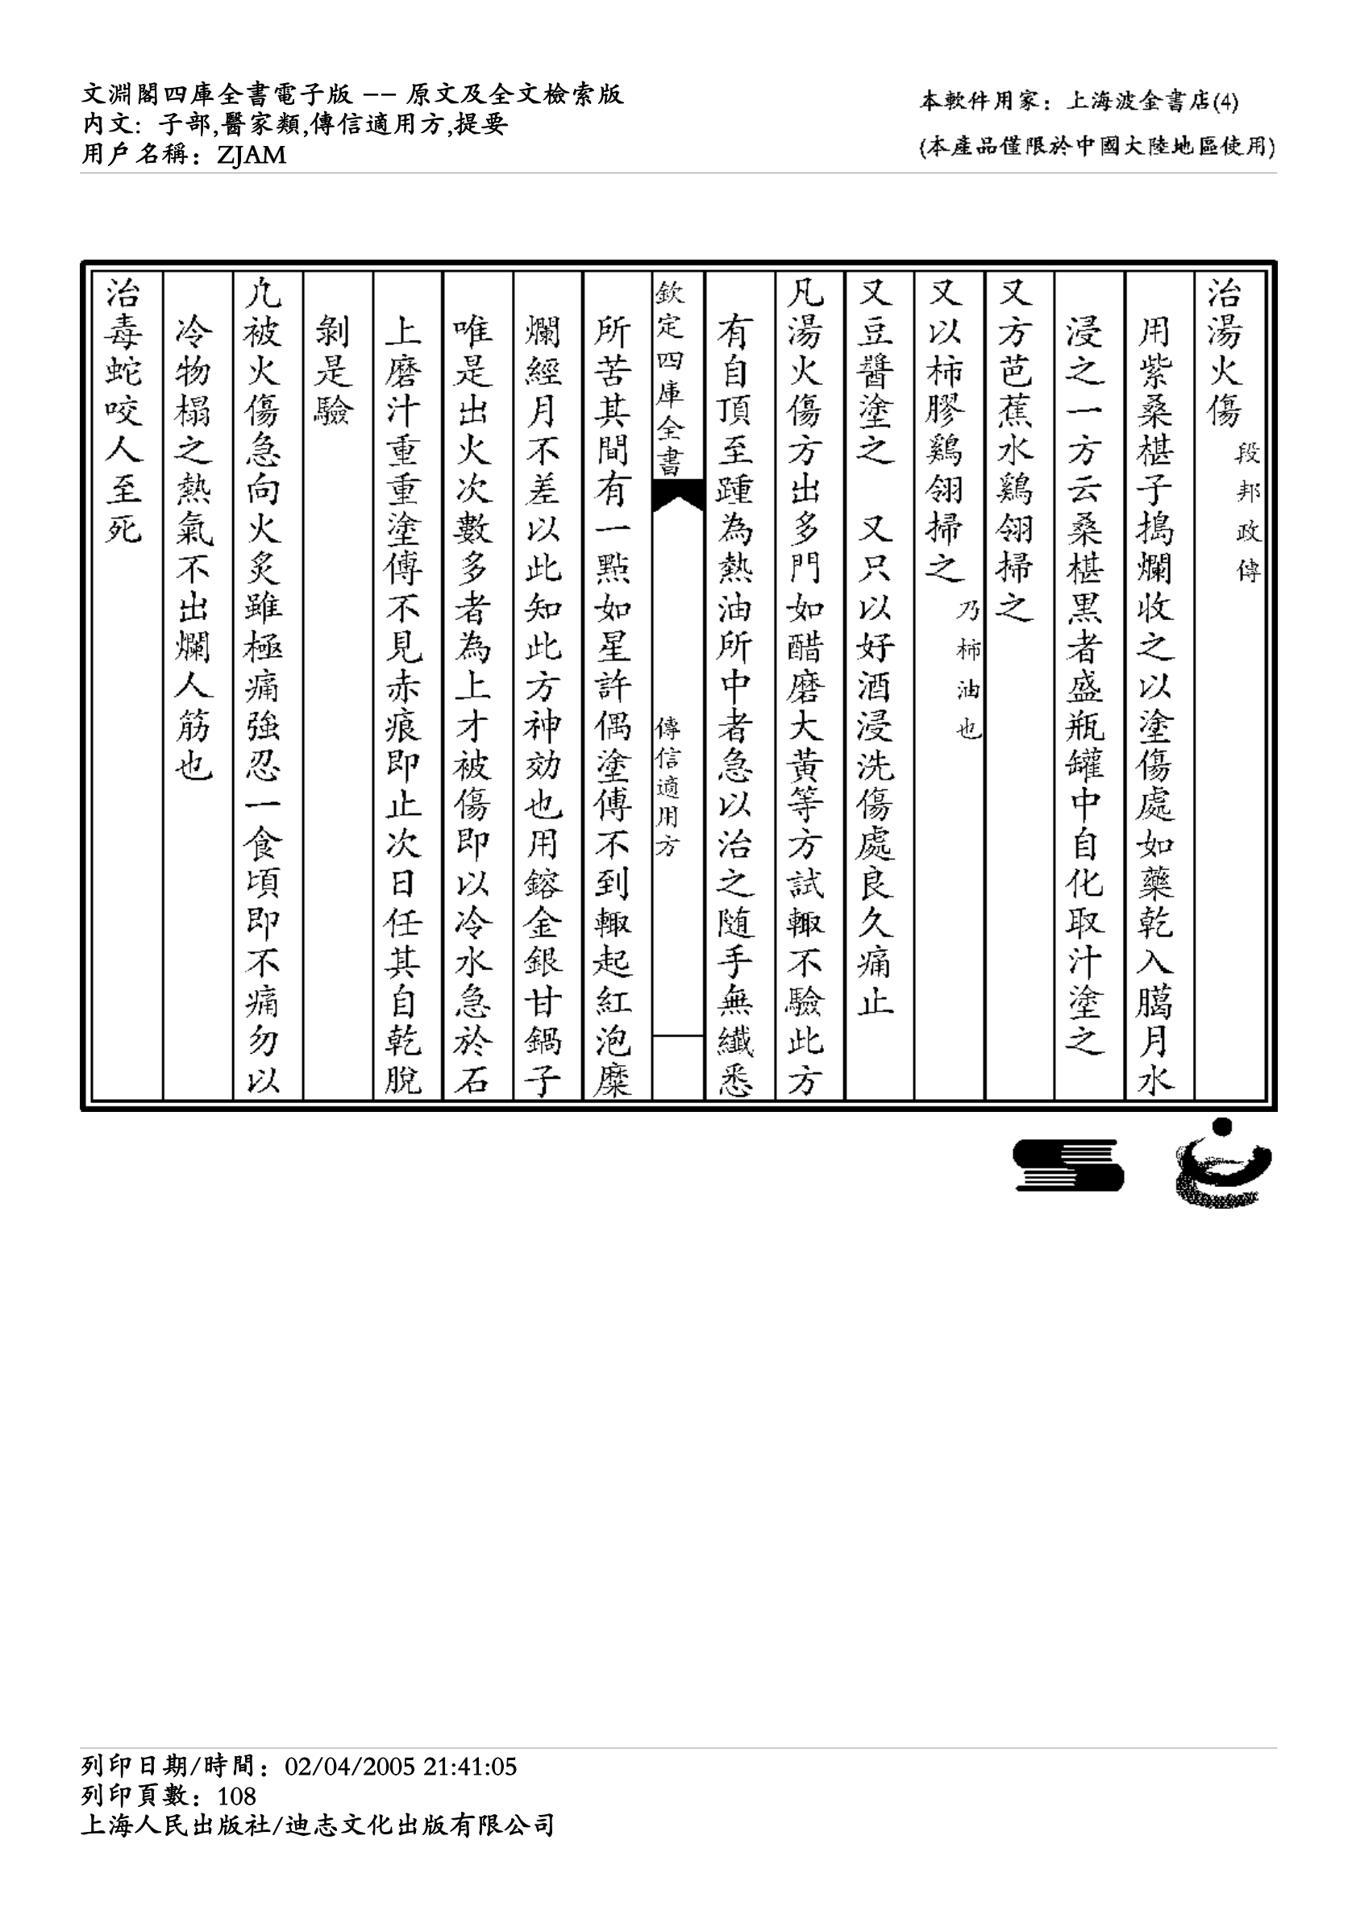 文淵閣四庫全書電子版 -- 原文及全文檢索版
內文: 子部,醫家類,傳信適用方,提要
用戶名稱: ZJAM
本軟件用家: 上海波金書店(4)
(本產品僅限於中國大陸地區使用)
治湯火傷 段邦政傳
用紫桑椹子搗爛收之以塗傷處如藥乾入臈月水
浸之一方云桑椹黒者盛瓶罐中自化取汁塗之
又方芭蕉水鷄翎掃之
又以柿膠鷄翎掃之 乃柿油也
又豆醬塗之 又只以好酒浸洗傷處良久痛止
凡湯火傷方出多門如醋磨大黃等方試輙不驗此方
有自頂至踵為熱油所中者急以治之随手無纎悉
欽定四庫全書 傳信適用方
所苦其間有一點如星許偶塗傅不到輙起紅泡糜
爛經月不差以此知此方神効也用鎔金銀甘鍋子
唯是出火次數多者為上才被傷即以冷水急於石
上磨汁重重塗傅不見赤痕即止次日任其自乾脫
剝是驗
凢被火傷急向火炙雖極痛強忍一食頃即不痛勿以
冷物榻之熱氣不出爛人筋也
治毒蛇咬人至死
列印日期/時間: 02/04/2005 21:41:05
列印頁數: 108
上海人民出版社/迪志文化出版有限公司